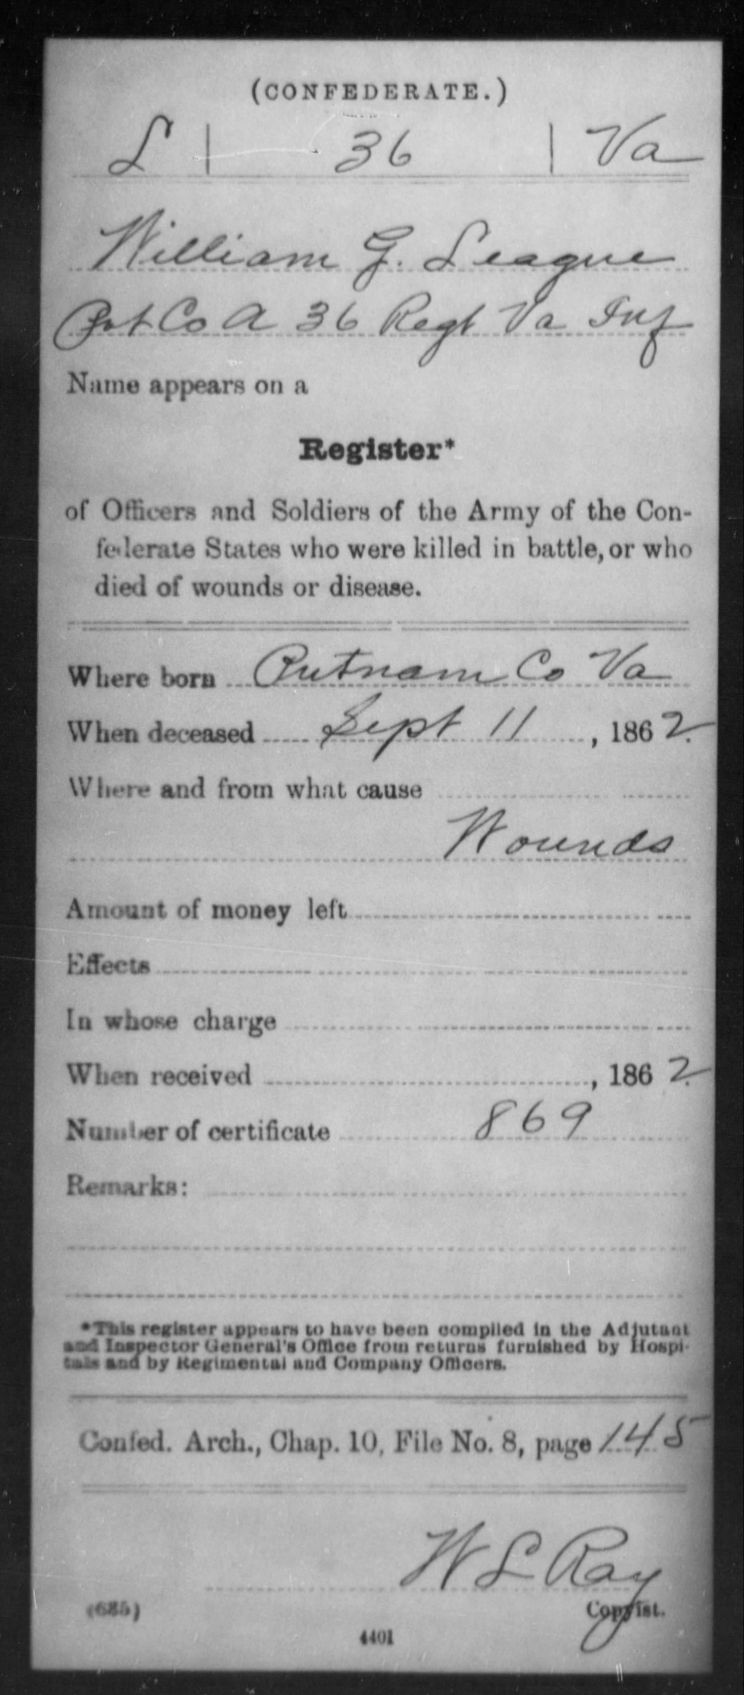 (CONFEDERATE.)
L | 36 | Va
William G. League
Pvt Co A 36 Regt Va Inf
Name appears on a
Register*
of Officers and Soldiers of the Army of the Con-
federate States who were killed in battle, or who
died of wounds or disease.
Where born Putnam Co Va
When deceased Sept 11, 1862.
Where and from what cause
Wounds
Amount of money left
Effects
In whose charge
When received , 1862.
Number of certificate 869
Remarks:
*This register appears to have been compiled in the Adjutant
and Inspector General's Office from returns furnished by Hospi-
tals and by Regimental and Company Officers.
Confed. Arch., Chap. 10, File No. 8, page 145
W L Ray
(635) Copyist.
4401